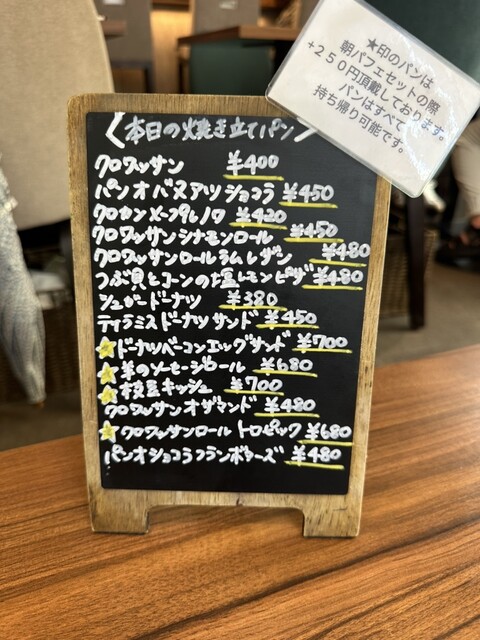 ★印のパンは
朝パフェセットの際
+250円頂戴しております。
パンはすべて
持ち帰り可能です。
〈本日の焼き立てパン〉
クロワッサン ¥400
パンオバヌアツショコラ ¥450
クロカンメープルノワ ¥420
クロワッサンシナモンロール ¥450
クロワッサンロールラムレザン ¥480
つぶ貝とコーンの塩レモンピザ ¥480
シュガードーナツ ¥380
ティラミスドーナツサンド ¥450
☆ドーナツベーコンエッグサンド ¥700
☆羊のソーセージロール ¥680
☆枝豆キッシュ ¥700
クロワッサンオザマンド ¥480
☆クロワッサンロール トロピック ¥680
パンオショコラフランボワーズ ¥480